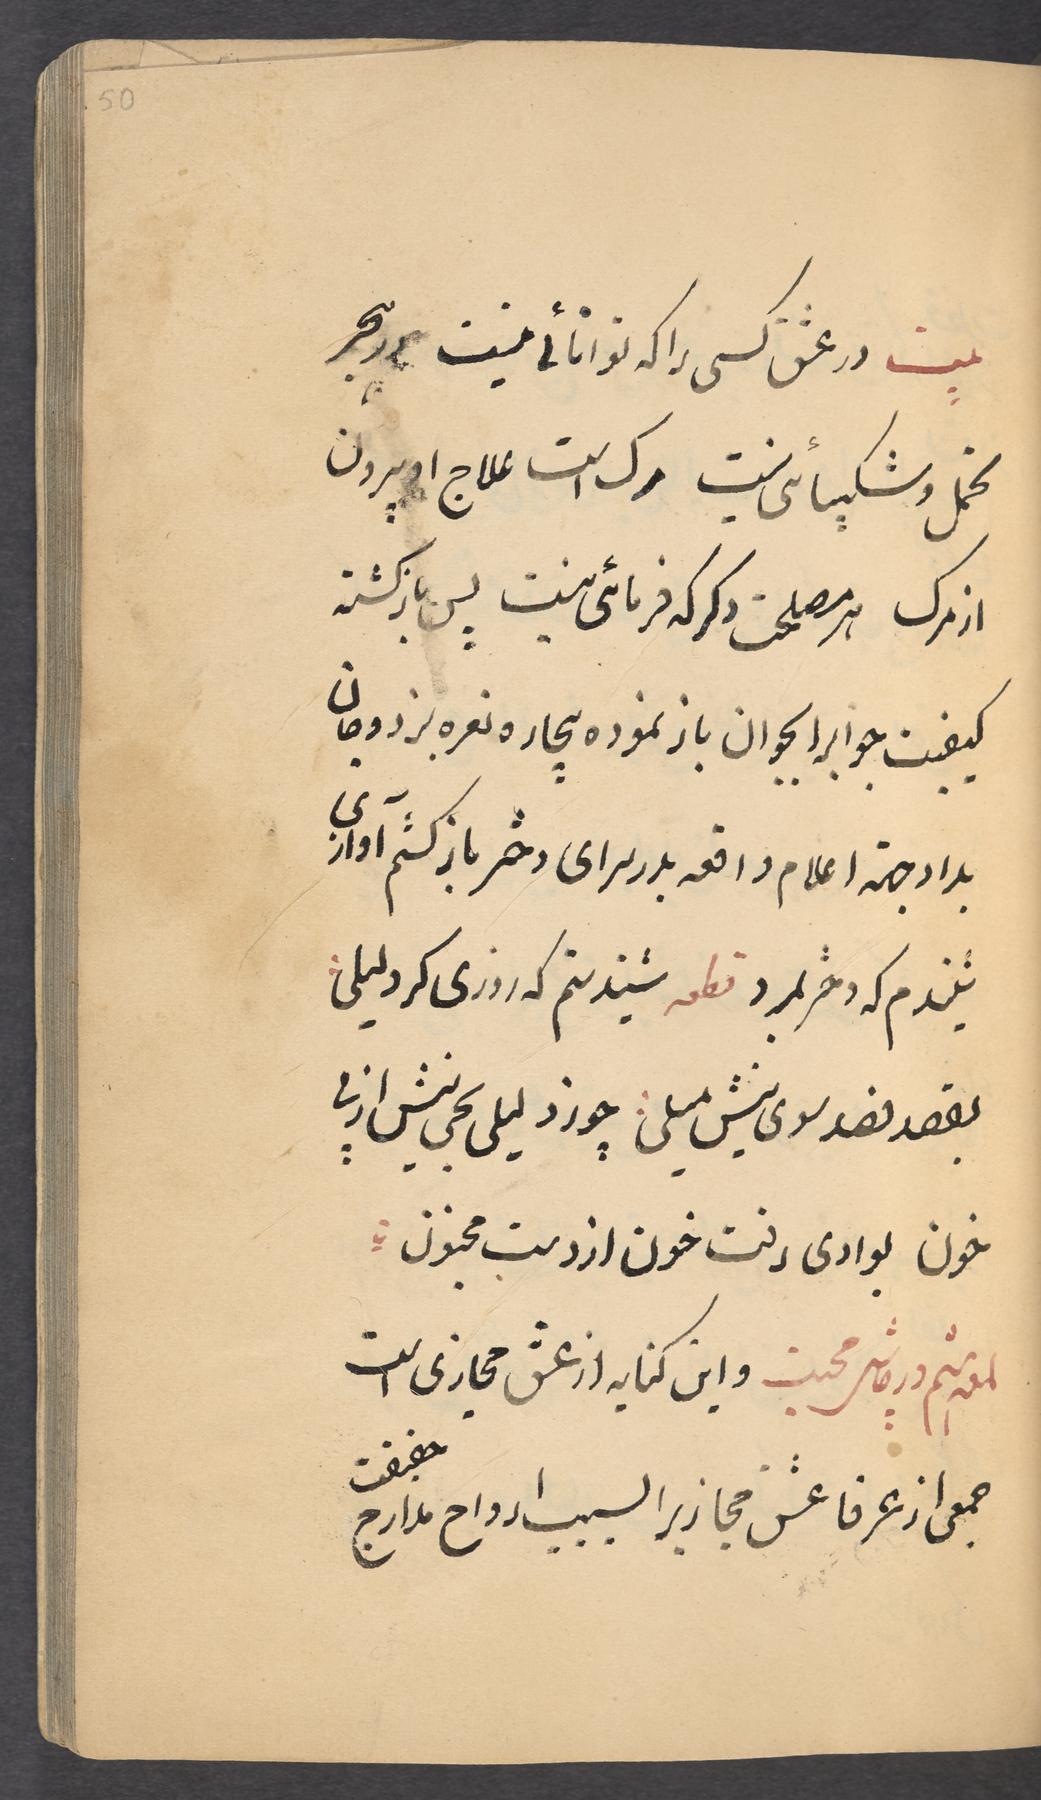 50
بیت در عشق کسی را که توانائی نیست در هجر
تحمل و شکیبائی نیست مرک است علاج او بیرون
از مرک هر مصلحت دکر که فرمائی نیست پس باز کشته
کیفیت جوابرا بجوان باز نموده بیچاره نعره بزد و جان
بداد جهة اعلام واقعه بدر سرای دختر باز کشتم آوازی
شنیدم که دختر بمرد قطعه شنیدستم که روزی کرد لیلی
بقصد فصد سوی نیش میلی چو زد لیلی بحی نیش از پی
خون بوادی رفت خون از دست مجنون
لمعه ششم در محبت و این کنایه از عشق مجازی است
جمعی از عرفا عشق مجازیرا بسبب ارواح مدارج حقیقت